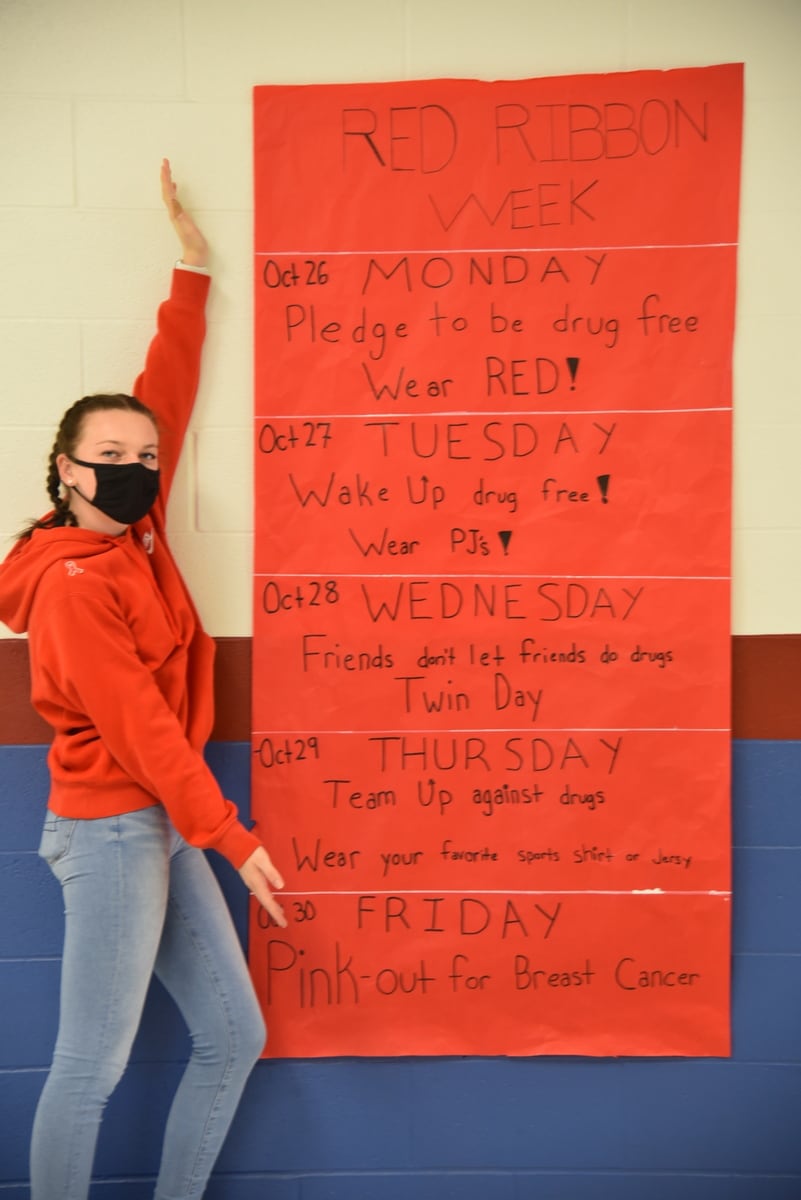 RED RIBBON
WEEK
Oct 26 MONDAY
Pledge to be drug free
Wear RED!
Oct 27 TUESDAY
Wake Up drug free!
Wear PJ's!
Oct 28 WEDNESDAY
Friends don't let friends do drugs
Twin Day
Oct 29 THURSDAY
Team Up against drugs
Wear your favorite sports shirt or Jersy
30 FRIDAY
Pink-out for Breast Cancer